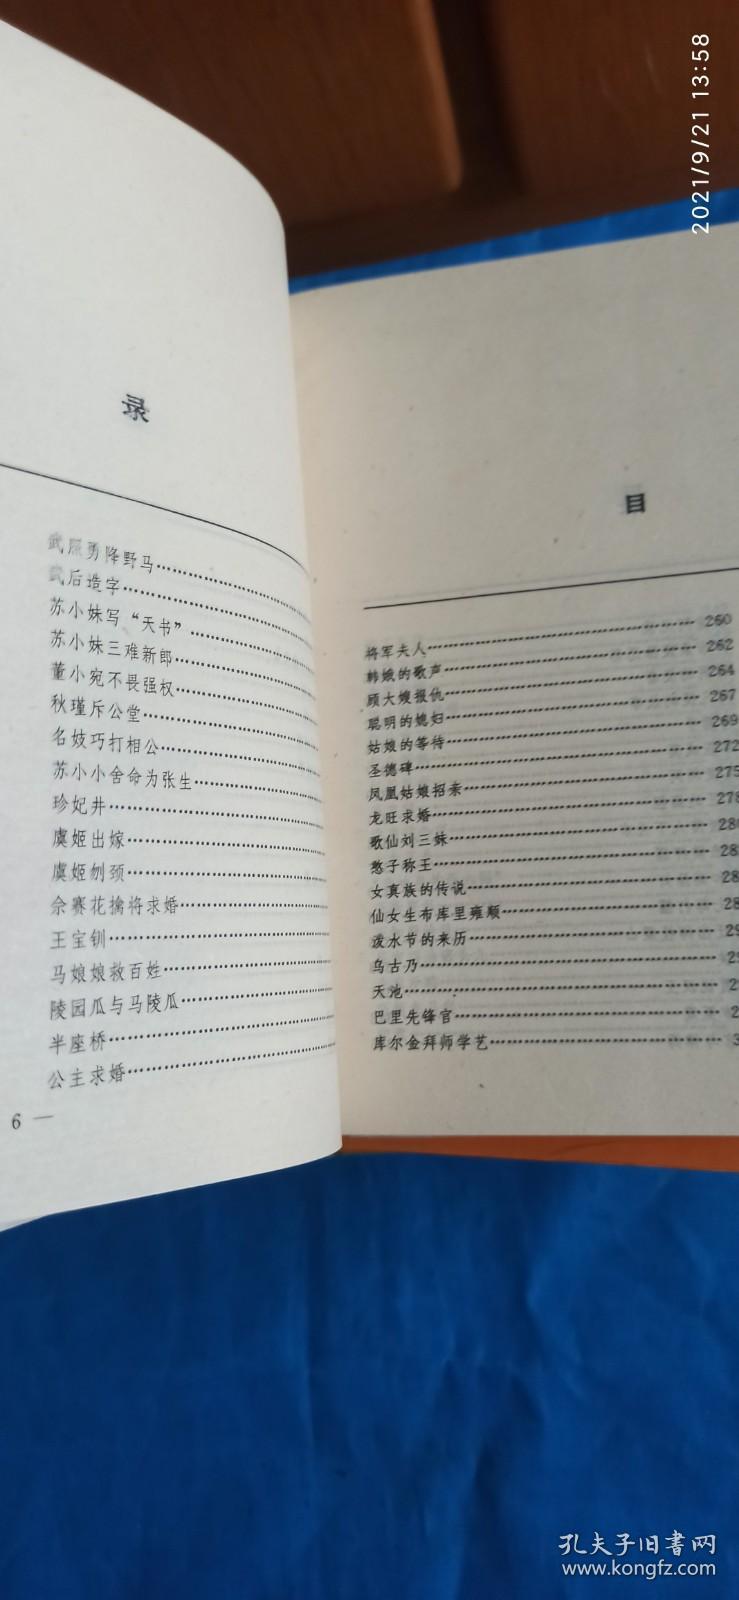 2021/9/21 13:58
录
武照勇降野马
武后造字
苏小妹写“天书”
苏小妹三难新郎
董小宛不畏强权
秋瑾斥公堂
名妓巧打相公
苏小小舍命为张生
珍妃井
虞姬出嫁
虞姬刎颈
佘赛花擒将求婚
王宝钏
马娘娘救百姓
陵园瓜与马陵瓜
半座桥
公主求婚
6 —
目
将军夫人 260
韩娥的歌声 262
顾大嫂报仇 264
聪明的媳妇 267
姑娘的等待 269
圣德碑 272
凤凰姑娘招亲 275
龙旺求婚 278
歌仙刘三妹
憨子称王
女真族的传说
仙女生布库里雍顺
泼水节的来历
乌古乃
天池
巴里先锋官
库尔金拜师学艺
孔夫子旧書网
www.kongfz.com